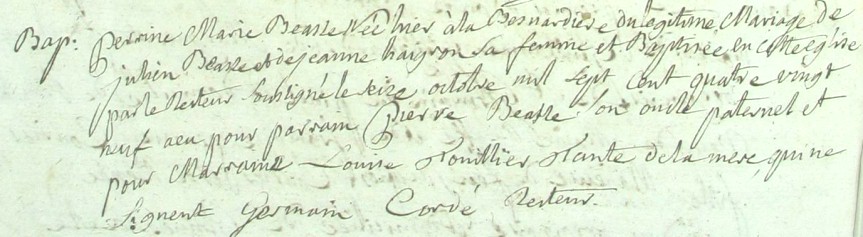 Bap: Perrine Marie Beasse Née hier à la Besnardiere du légitime Mariage de
julien Beasse et de jeanne haigron Sa femme et Baptisée en cette église
par le Recteur Soussigné le seize octobre mil sept cent quatre vingt
neuf a eu pour parrain Pierre Beasse Son oncle paternel et
pour Marraine Louise tante de la mere, qui ne
Signent Germain Cordé Recteur.